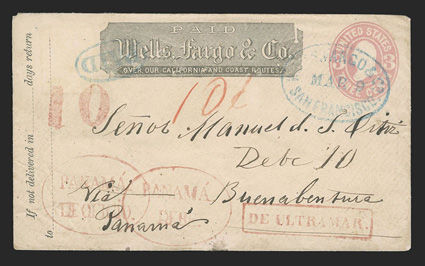 PAID
Wells, Fargo & Co.
OVER OUR CALIFORNIA AND COAST ROUTES
UNITED STATES
MAR
SAN FRANCISCO
If not delivered in days return
to
10
10¢
Señor Manuel d. J.
Debe 10
Via Buenabentura
Panamá
PANAMÁ
PANAMÁ
DE ULTRAMAR.